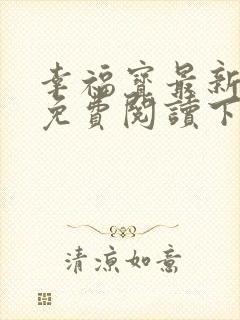 幸福寶最新
免費閱讀下
清涼如意